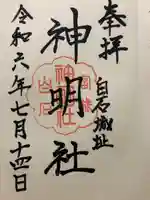 奉拝
白石城址
神明社
令和六年七月十四日